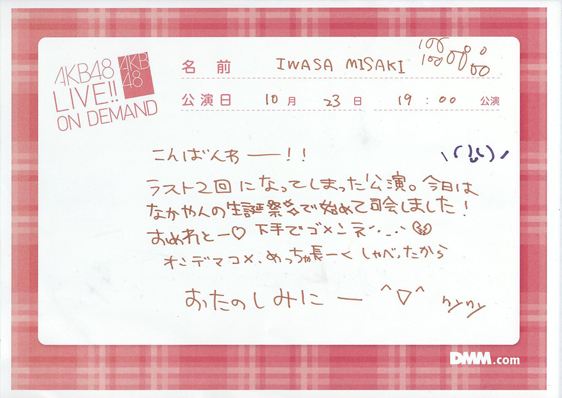 AKB48
LIVE!!
ON DEMAND
AKB
48
名 前 IWASA MISAKI
公演日 10月 23日 19:00 公演
こんばんわー!!
ラスト2回になってしまった公演。今日は
なかやんの生誕祭で始めて司会しました!
おめれとー♡ 下手でゴメンネ
オンデマコメ、めっちゃ長ーくしゃべったから
おたのしみにー ^▽^ ケンケン
DMM.com